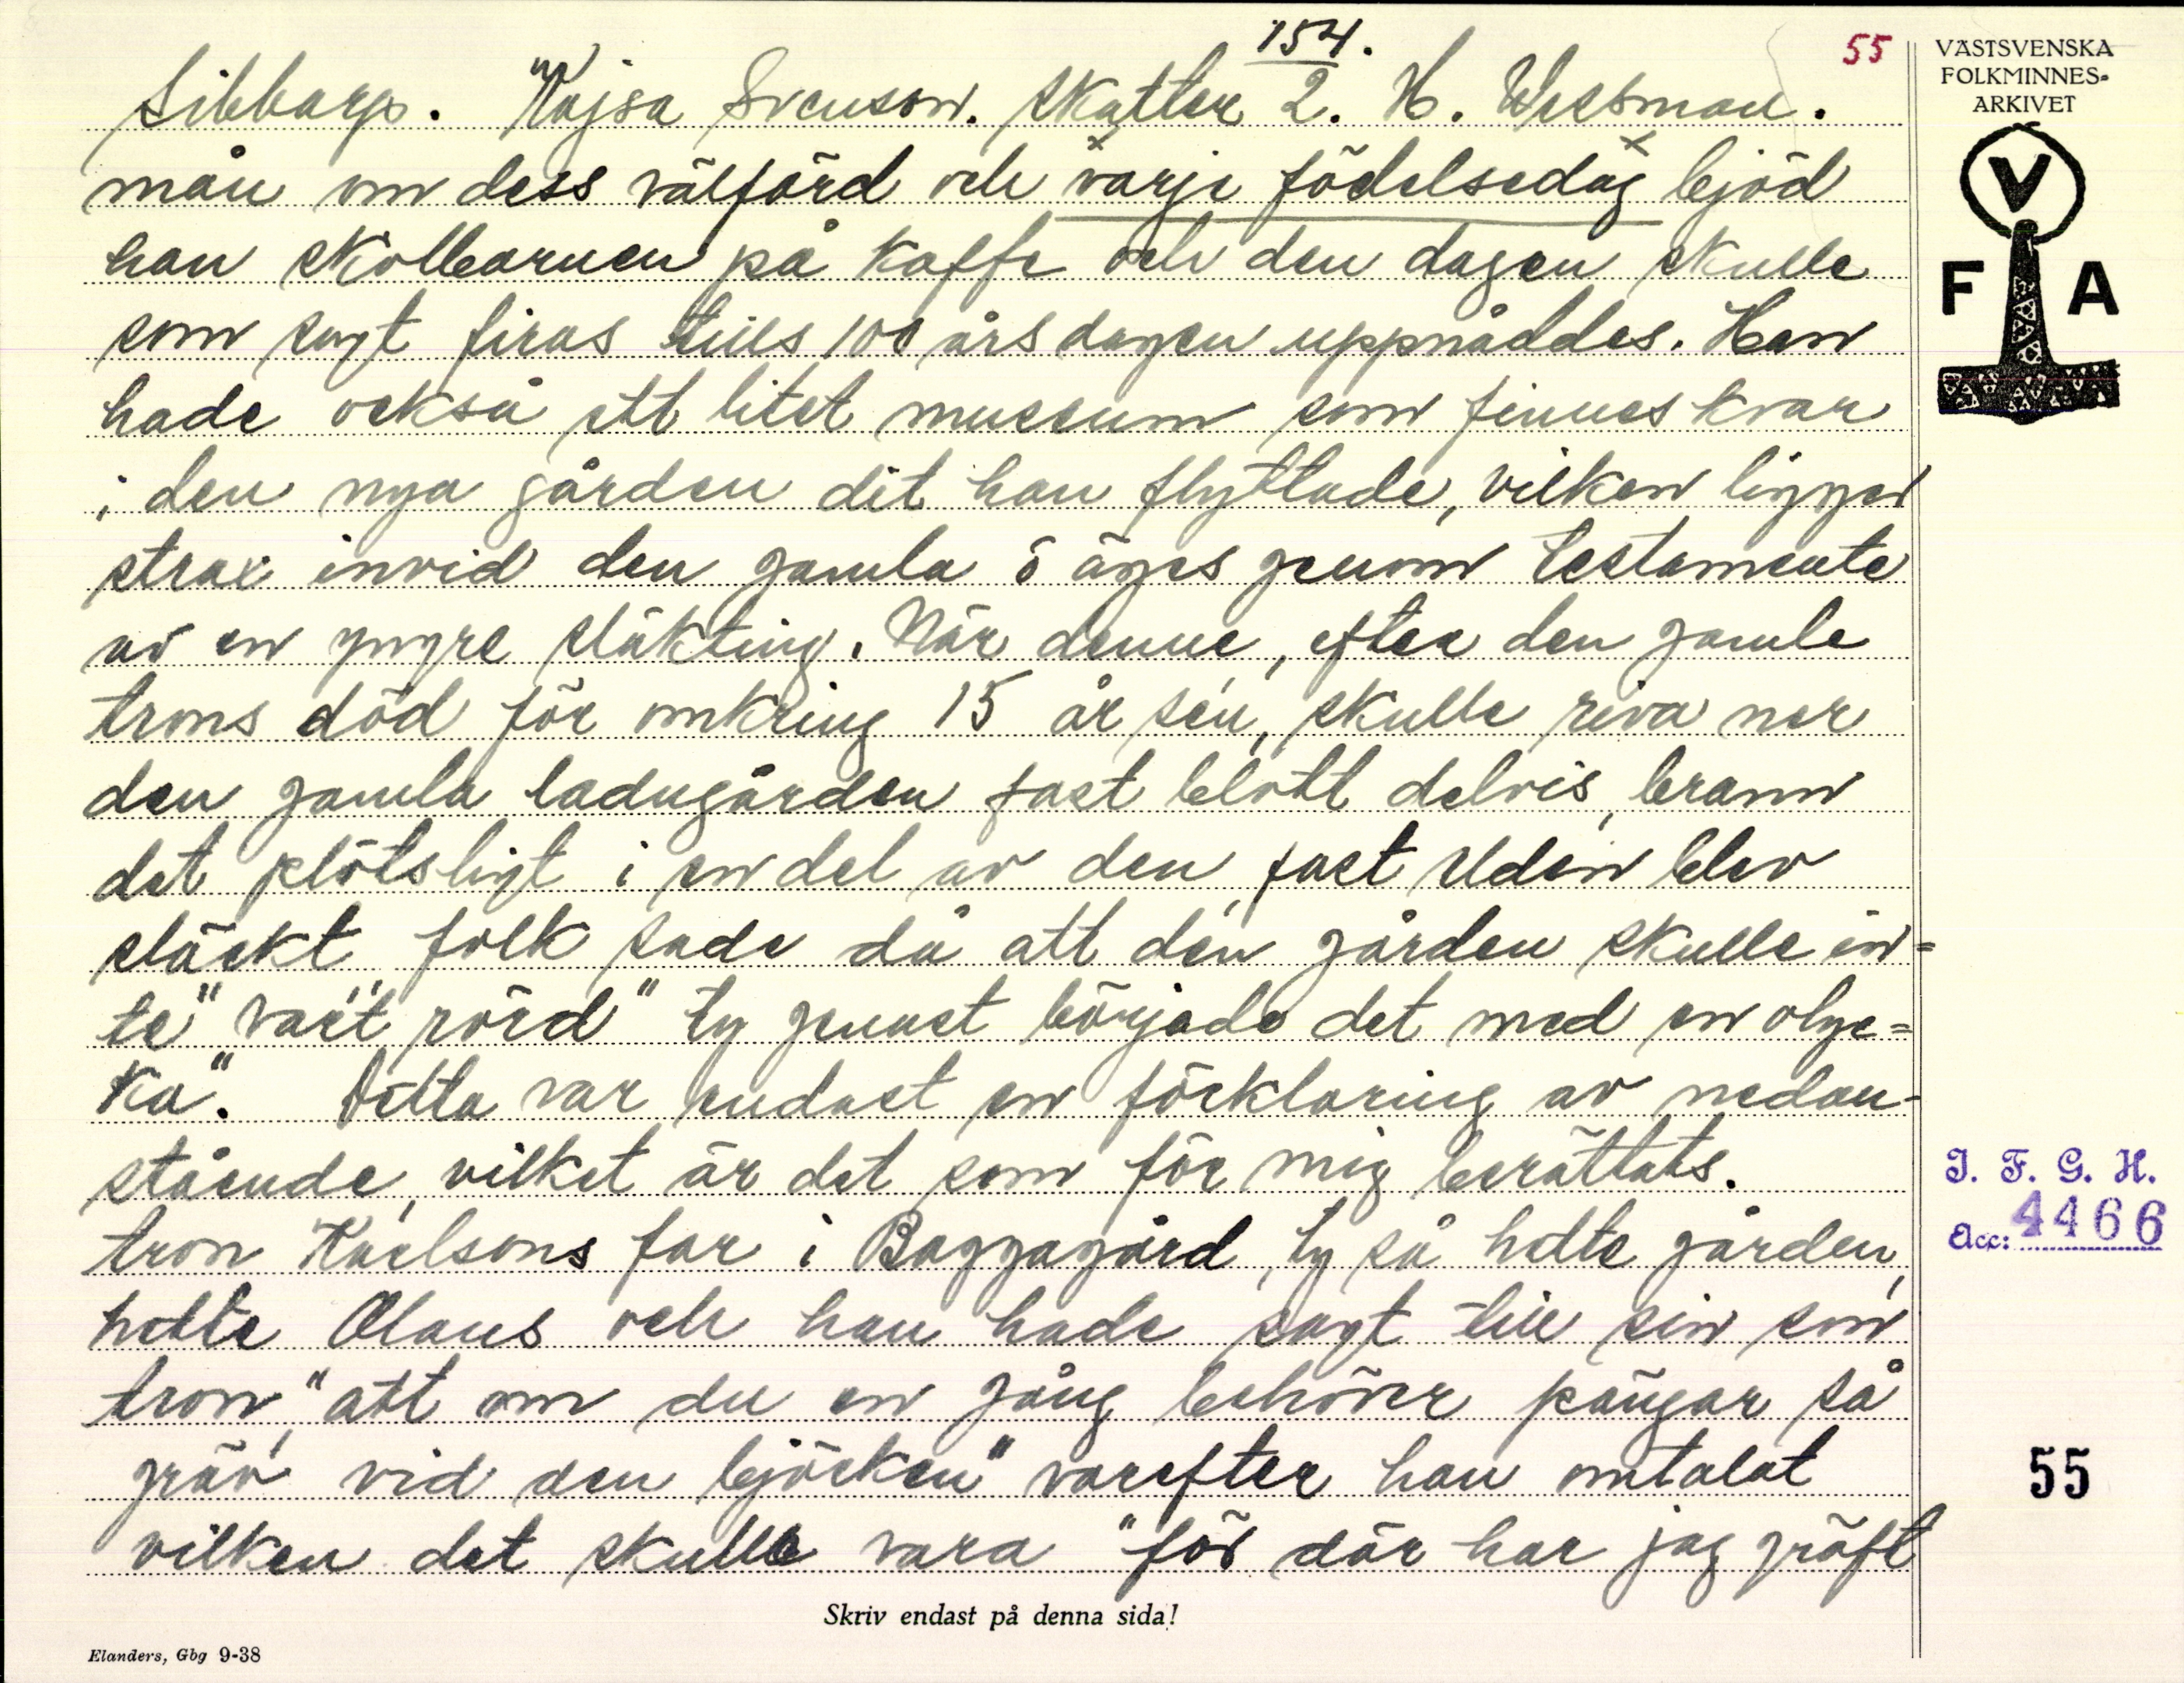 154.
55
Sibbarp. "Kajsa Svenson. Skatter 2. H. Wessman.
mån om dess välfärd och varje födelsedag bjöd
han skolbarnen på kaffe och den dagen skulle
som sagt firas tills 100 årsdagen uppnåddes. Han
hade också ett litet museum som finnes kvar
i den nya gården dit han flyttade, vilken ligger
strax invid den gamla o äges genom testamente
av en yngre släkting. När denne, efter den gamle
trons död för omkring 15 år sen, skulle riva ner
den gamla ladugården fast blott delvis, brann
det plötsligt i en del av den, fast elden blev
släckt, folk sade då att den gården skulle in=
te "vart rörd" ty genast började det med en olyc=
ka". Detta var endast en förklaring av nedan-
stående, vilket är det som för mig berättats.
tron Karlsons far i Baggagård, ty så hette gården,
hette Olaus och han hade sagt till sin son
tron, "att om du en gång behöver pängar så
gräv vid den björken" varefter han omtalat
vilken det skulle vara "för där har jag gräft
Skriv endast på denna sida!
Elanders, Gbg 9-38
VÄSTSVENSKA
FOLKMINNES-
ARKIVET
V
F A
I. F. G. H.
Acc: 4466
55